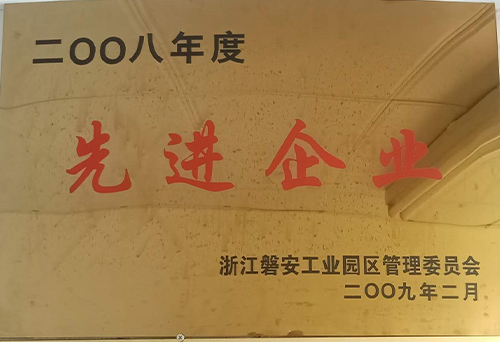 二〇〇八年度
先进企业
浙江磐安工业园区管理委员会
二〇〇九年二月